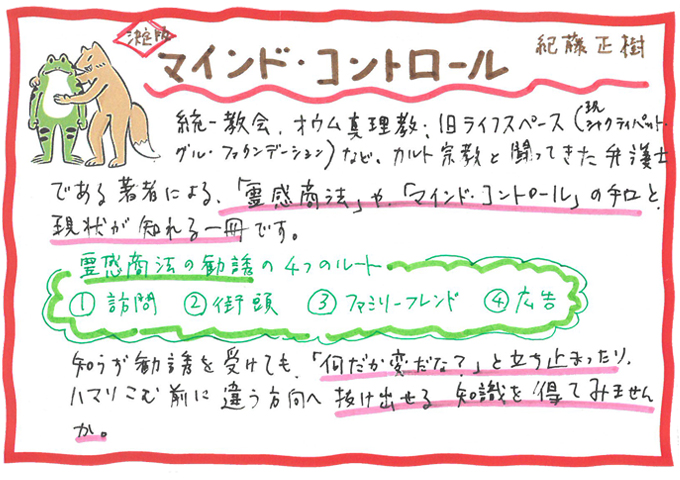 決定版
マインド・コントロール
紀藤正樹
統一教会、オウム真理教、旧ライフスペース(現シャクティパット・
グル・ファウンデーション)など、カルト宗教と闘ってきた弁護士
である著者による、「霊感商法」や、「マインド・コントロール」の手口と、
現状が知れる一冊です。
霊感商法の勧誘の4つのルート
① 訪問 ② 街頭 ③ ファミリーフレンド ④ 広告
知らず勧誘を受けても、「何だか変だな?」と立ち止まったり、
ハマりこむ前に違う方向へ抜け出せる知識を得てみません
か。